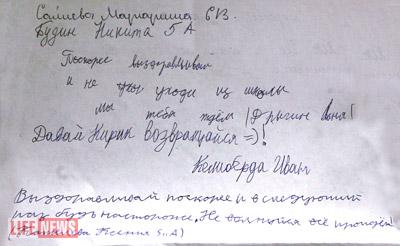 Маргарита 6В.
Будин Никита 5А
Поскорее выздоравливай
и не уходи из школы
мы тебя ждём! Дрыгин Ваня!
Давай Кирик возвращайся =)!
Иван
Выздоравливай поскорее и в следующий
раз будь настороже. Не волнуйся всё пройдёт!
Ксения 5"А)
LIFE
NEWS